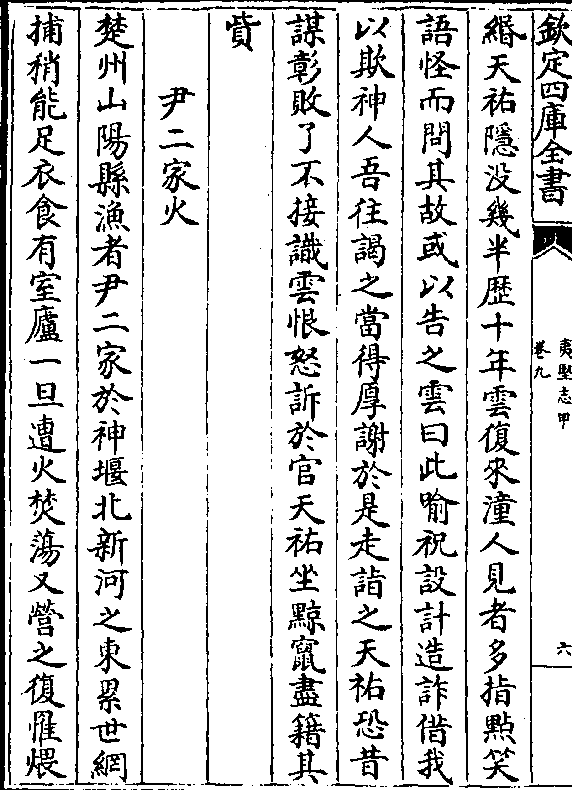 欽定四庫全書
夷堅志甲
卷九
六
緡天祐隱没幾半歴十年雲復來潼人見者多指點笑
語怪而問其故或以告之雲曰此喻祝設計造詐借我
以欺神人吾往謁之當得厚謝於是走詣之天祐恐昔
謀彰敗了不接識雲恨怒訴於官天祐坐黥竄盡籍其
貲
尹二家火
楚州山陽縣漁者尹二家於神堰北新河之東累世網
捕稍能足衣食有室廬一旦遭火焚蕩又營之復罹煨